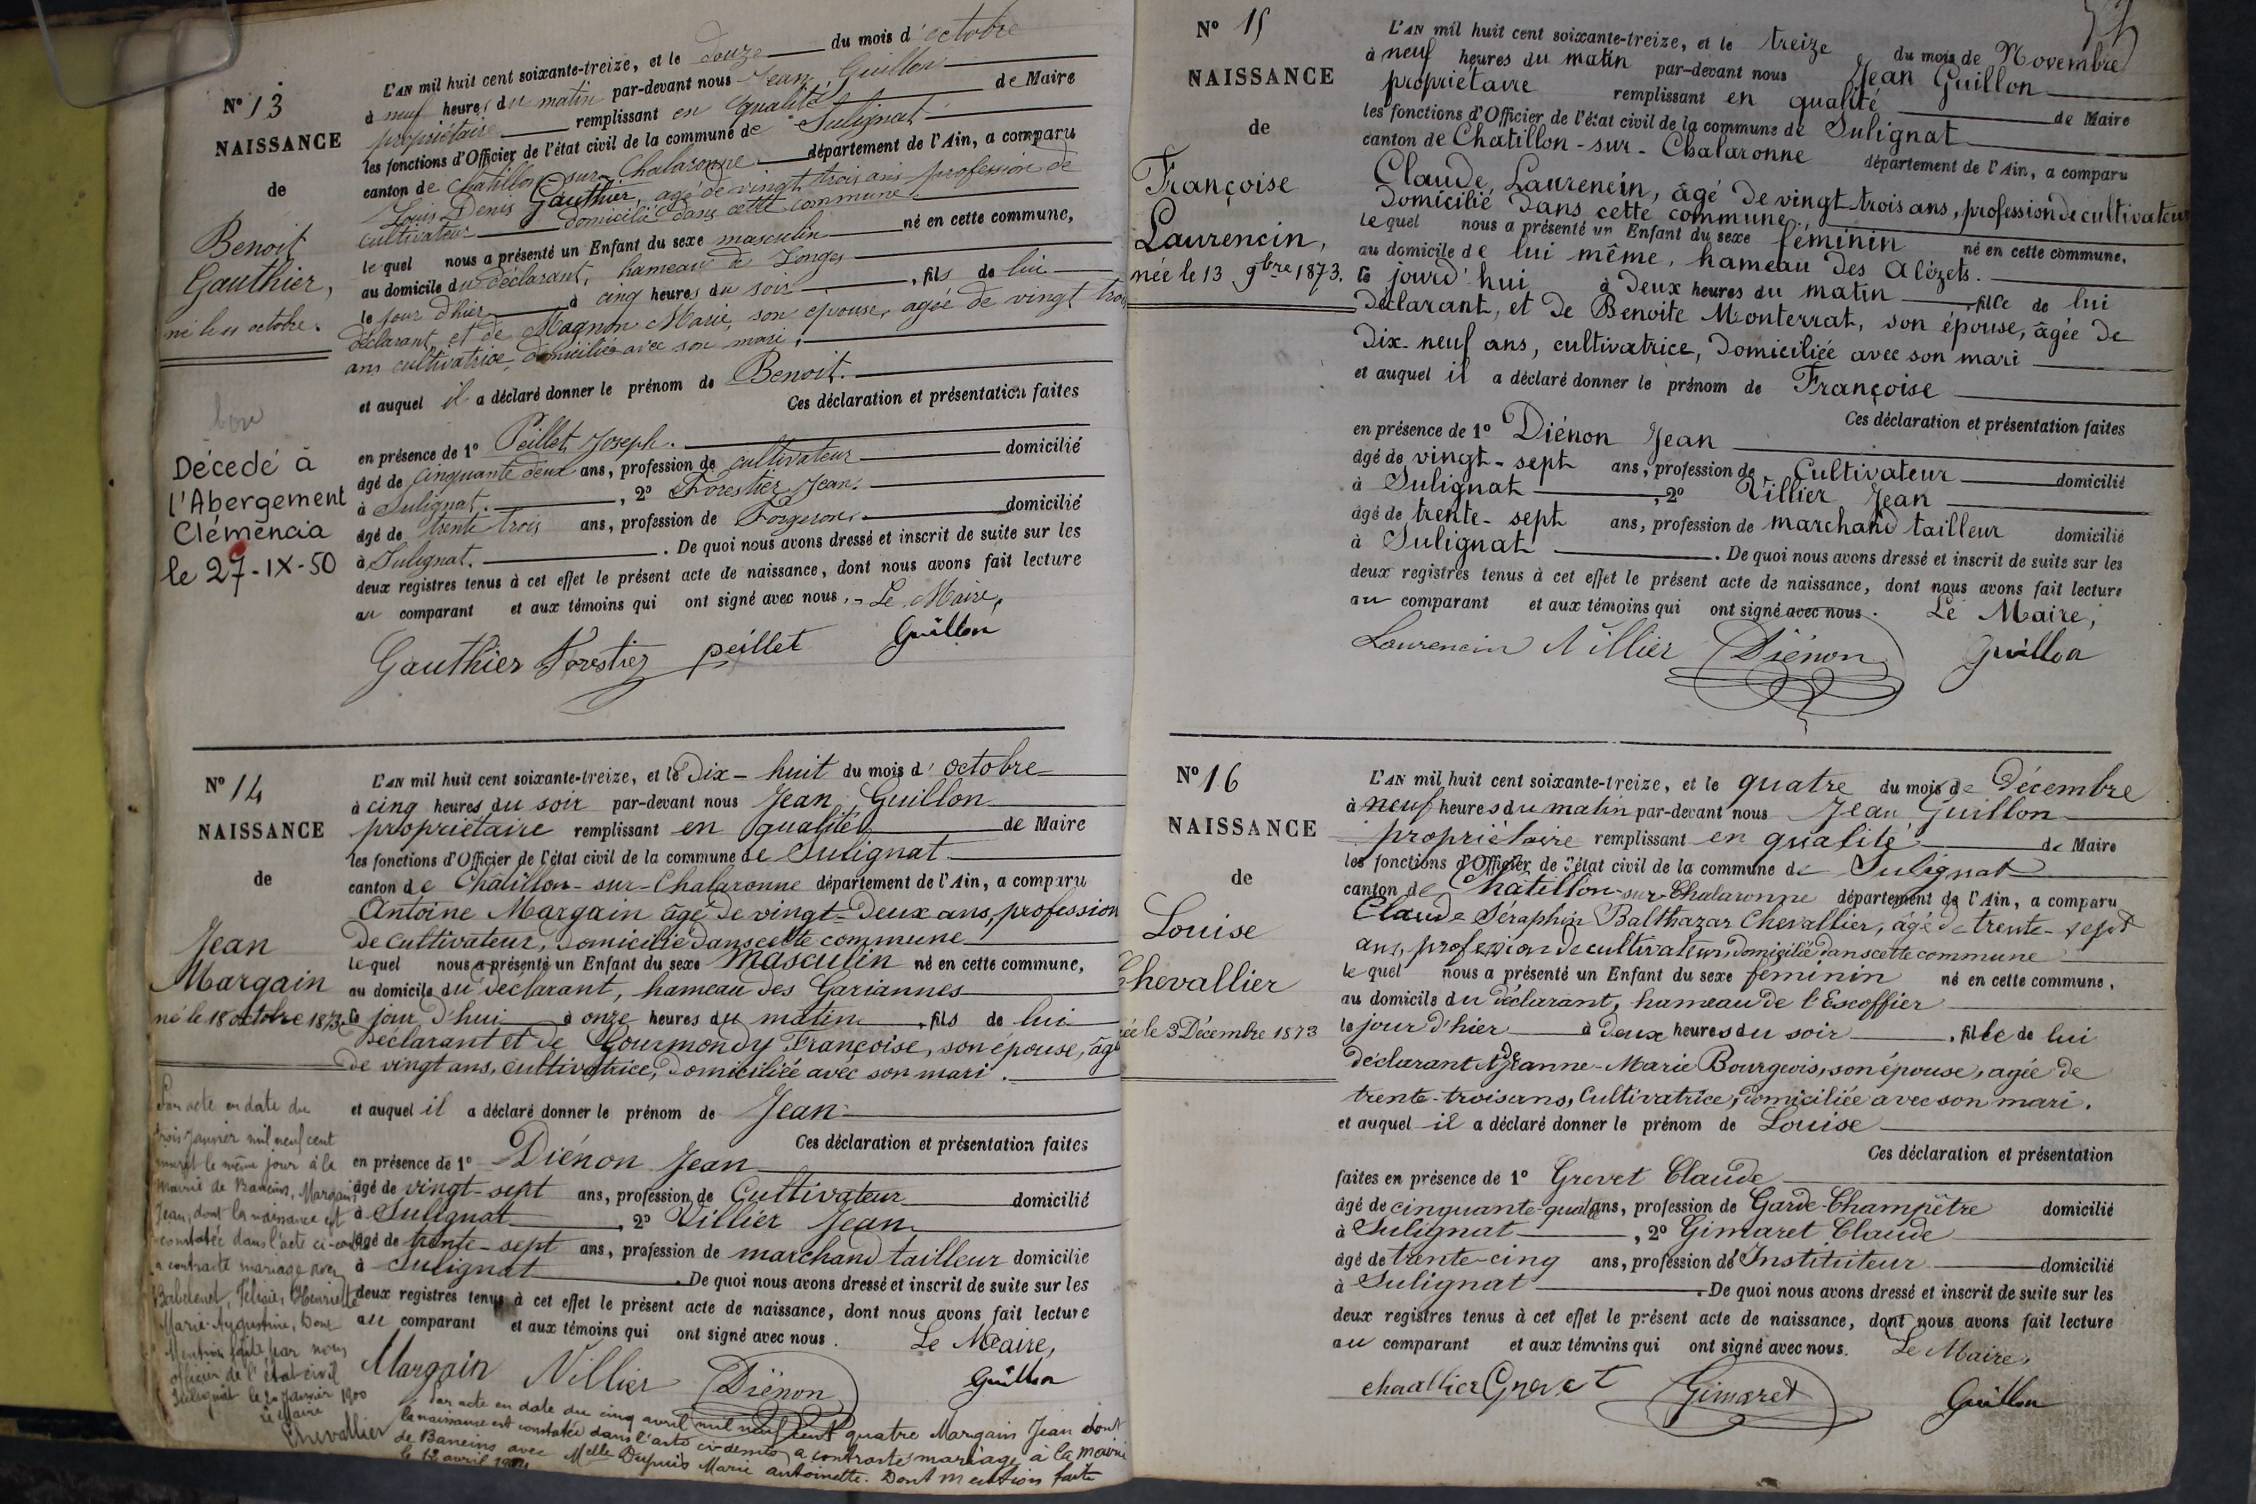 N° 13
NAISSANCE
de
Benoit
Gauthier,
né le 11 octobre.
bon
Décedé à
l'Abergement
Clémencia
le 27-IX-50
L'AN mil huit cent soixante-treize, et le douze du mois d'octobre
à neuf heures du matin par-devant nous Jean Guillon
propriétaire remplissant en qualité de Maire
les fonctions d'Officier de l'état civil de la commune de Sulignat
canton de Chatillon-sur-Chalaronne département de l'Ain, a comparu
Louis Denis Gauthier, agé de vingt trois ans profession de
cultivateur domicilié dans cette commune
lequel nous a présenté un Enfant du sexe masculin né en cette commune,
au domicile du déclarant, hameau de Longes
le jour d'hier à cinq heures du soir, fils de lui
déclarant, et de Magnon Marie, son épouse, agée de vingt trois
ans cultivatrice, domiciliée avec son mari.
et auquel il a déclaré donner le prénom de Benoit.
Ces déclaration et présentation faites
en présence de 1° Peillet Joseph.
âgé de cinquante deux ans, profession de cultivateur domicilié
à Sulignat., 2° Forestier Jean.
âgé de trente trois ans, profession de Forgeron domicilié
à Sulignat. . De quoi nous avons dressé et inscrit de suite sur les
deux registres tenus à cet effet le présent acte de naissance, dont nous avons fait lecture
au comparant et aux témoins qui ont signé avec nous. - Le Maire,
Gauthier Forestier peillet Guillon
N° 14
NAISSANCE
de
Jean
Margain
né le 18 octobre 1873
L'AN mil huit cent soixante-treize, et le Dix-huit du mois d'octobre
à cinq heures du soir par-devant nous Jean Guillon
propriétaire remplissant en qualité de Maire
les fonctions d'Officier de l'état civil de la commune de Sulignat
canton de Châtillon-sur-Chalaronne département de l'Ain, a comparu
Antoine Margain âgé de vingt-deux ans, profession
de cultivateur, domicilié dans cette commune
lequel nous a présenté un Enfant du sexe masculin né en cette commune,
au domicile du déclarant, hameau des Gariannes
le jour d'hui à onze heures du matin, fils de lui
Déclarant et de Gourmondy Françoise, son épouse, âgé
de vingt ans, cultivatrice, domiciliée avec son mari.
et auquel il a déclaré donner le prénom de Jean
Ces déclaration et présentation faites
en présence de 1° Diénon Jean
âgé de vingt-sept ans, profession de Cultivateur domicilié
à Sulignat, 2° Villier Jean
âgé de trente-sept ans, profession de marchand tailleur domicilié
à Sulignat. De quoi nous avons dressé et inscrit de suite sur les
deux registres tenus à cet effet le présent acte de naissance, dont nous avons fait lecture
au comparant et aux témoins qui ont signé avec nous. Le Maire,
Margain Villier Diénon Guillon
Par acte en date du
trois Janvier mil neuf cent
inscrit le même jour à la
mairie de Baneins, Margain
Jean, dont la naissance est
constatée dans l'acte ci-contre
a contracté mariage avec
Félicie, Henriette
Marie-Augustine, Dont
Mention faite par nous
officier de l'état civil
Sulignat le 20 Janvier 1900
Le Maire
Chevallier
Par acte en date du cinq avril mil neuf cent quatre Margain Jean dont
la naissance est constatée dans l'acte ci-dessus, a contracté mariage à la mairie
de Baneins avec Melle Dupuis Marie antoinette. Dont mention faite
le 12 avril 1904
N° 15
NAISSANCE
de
Françoise
Laurencin,
née le 13 9bre 1873.
L'AN mil huit cent soixante-treize, et le treize du mois de Novembre
à neuf heures du matin par-devant nous Jean Guillon
propriétaire remplissant en qualité de Maire
les fonctions d'Officier de l'état civil de la commune de Sulignat
canton de Chatillon-sur-Chalaronne département de l'Ain, a comparu
Claude, Laurencin, âgé de vingt trois ans, profession de cultivateur
Domicilié dans cette commune.
lequel nous a présenté un Enfant du sexe féminin né en cette commune,
au domicile de lui même, hameau des Alézets.
le jourd'hui à deux heures du matin, fille de lui
déclarant, et de Benoite Monterrat, son épouse, âgée de
Dix-neuf ans, cultivatrice, domiciliée avec son mari
et auquel il a déclaré donner le prénom de Françoise
Ces déclaration et présentation faites
en présence de 1° Diénon Jean
âgé de vingt-sept ans, profession de Cultivateur domicilié
à Sulignat, 2° Villier Jean
âgé de trente-sept ans, profession de marchand tailleur domicilié
à Sulignat. De quoi nous avons dressé et inscrit de suite sur les
deux registres tenus à cet effet le présent acte de naissance, dont nous avons fait lecture
au comparant et aux témoins qui ont signé avec nous. Le Maire,
Laurencin Villier Diénon Guillon
N° 16
NAISSANCE
de
Louise
Chevallier
née le 3 Décembre 1873
L'AN mil huit cent soixante-treize, et le quatre du mois de Décembre
à neuf heures du matin par-devant nous Jean Guillon
propriétaire remplissant en qualité de Maire
les fonctions d'Officier de l'état civil de la commune de Sulignat
canton de Châtillon-sur-Chalaronne département de l'Ain, a comparu
Claude Séraphin Balthazar Chevallier, âgé de trente-sept
ans, profession de cultivateur, domicilié dans cette commune
lequel nous a présenté un Enfant du sexe féminin né en cette commune,
au domicile du déclarant, hameau de l'Escoffier
le jour d'hier à deux heures du soir, fille de lui
déclarant de Jeanne-Marie Bourgeois, son épouse, agée de
trente-trois ans, Cultivatrice, domiciliée avec son mari.
et auquel il a déclaré donner le prénom de Louise
Ces déclaration et présentation
faites en présence de 1° Grevet Claude
âgé de cinquante-quatre ans, profession de Garde-Champêtre domicilié
à Sulignat, 2° Gimaret Claude
âgé de trente-cinq ans, profession de Instituteur domicilié
à Sulignat. De quoi nous avons dressé et inscrit de suite sur les
deux registres tenus à cet effet le présent acte de naissance, dont nous avons fait lecture
au comparant et aux témoins qui ont signé avec nous. Le Maire,
chevallier Grevet Gimaret Guillon